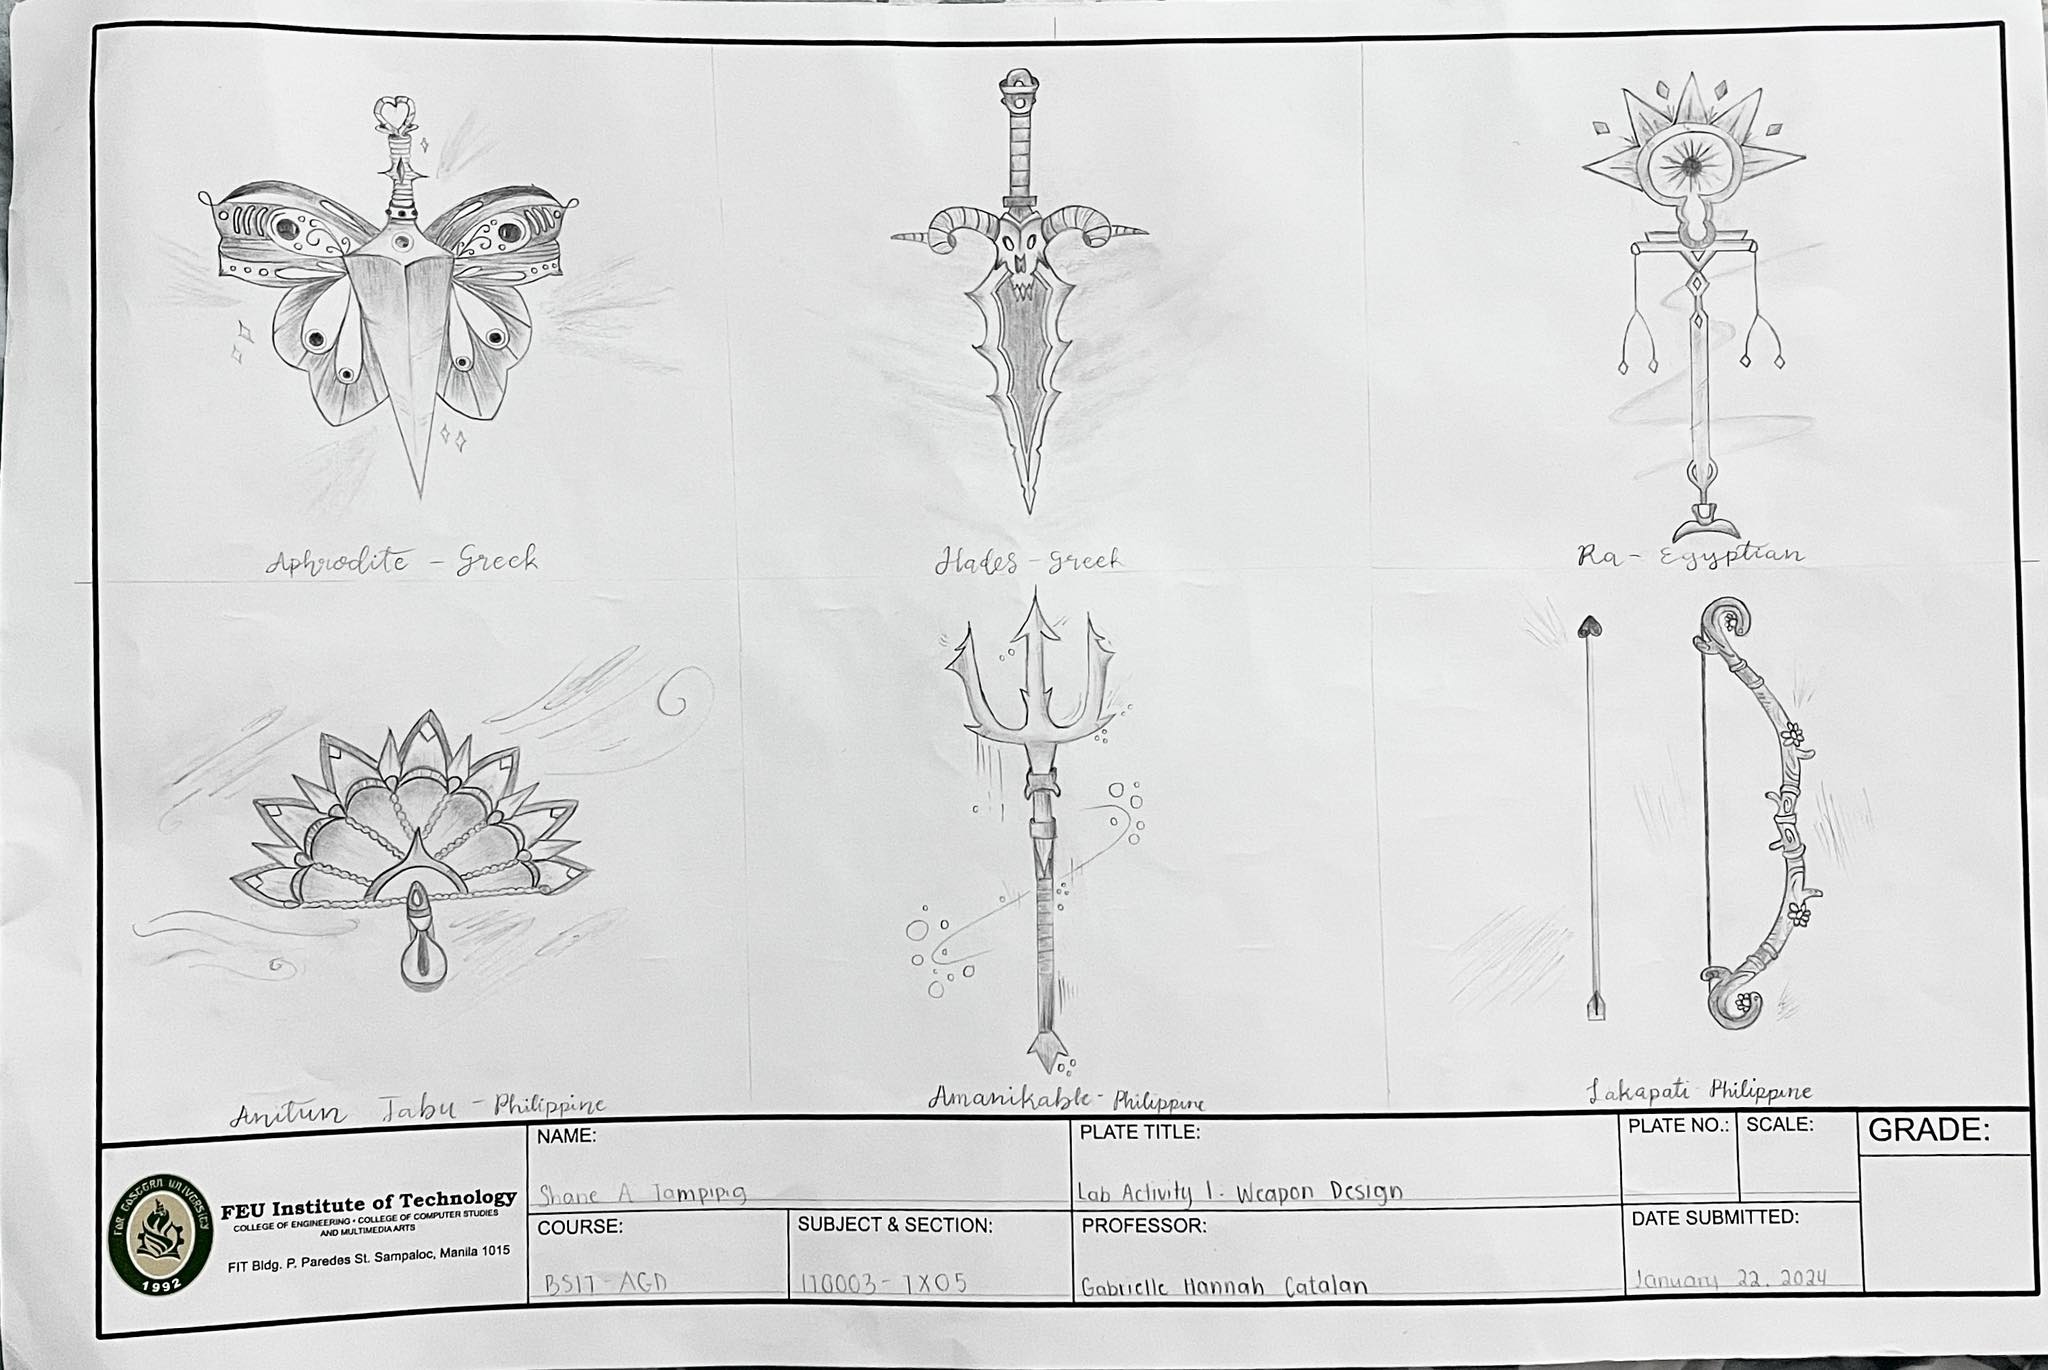 Aphrodite - Greek
Hades - Greek
Ra - Egyptian
Anitun Tabu - Philippine
Amanikable - Philippine
Lakapati Philippine
FAR EASTERN UNIVERSITY
1992
FEU Institute of Technology
COLLEGE OF ENGINEERING • COLLEGE OF COMPUTER STUDIES
AND MULTIMEDIA ARTS
FIT Bldg. P. Paredes St. Sampaloc, Manila 1015
NAME:
Shane A Tampipig
PLATE TITLE:
Lab Activity 1. Weapon Design
PLATE NO.:
SCALE:
GRADE:
COURSE:
BSIT-AGD
SUBJECT & SECTION:
IT0003-TX05
PROFESSOR:
Gabrielle Hannah Catalan
DATE SUBMITTED:
January 22, 2024